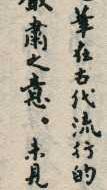 華在古代流行的
嚴肅之意。未見